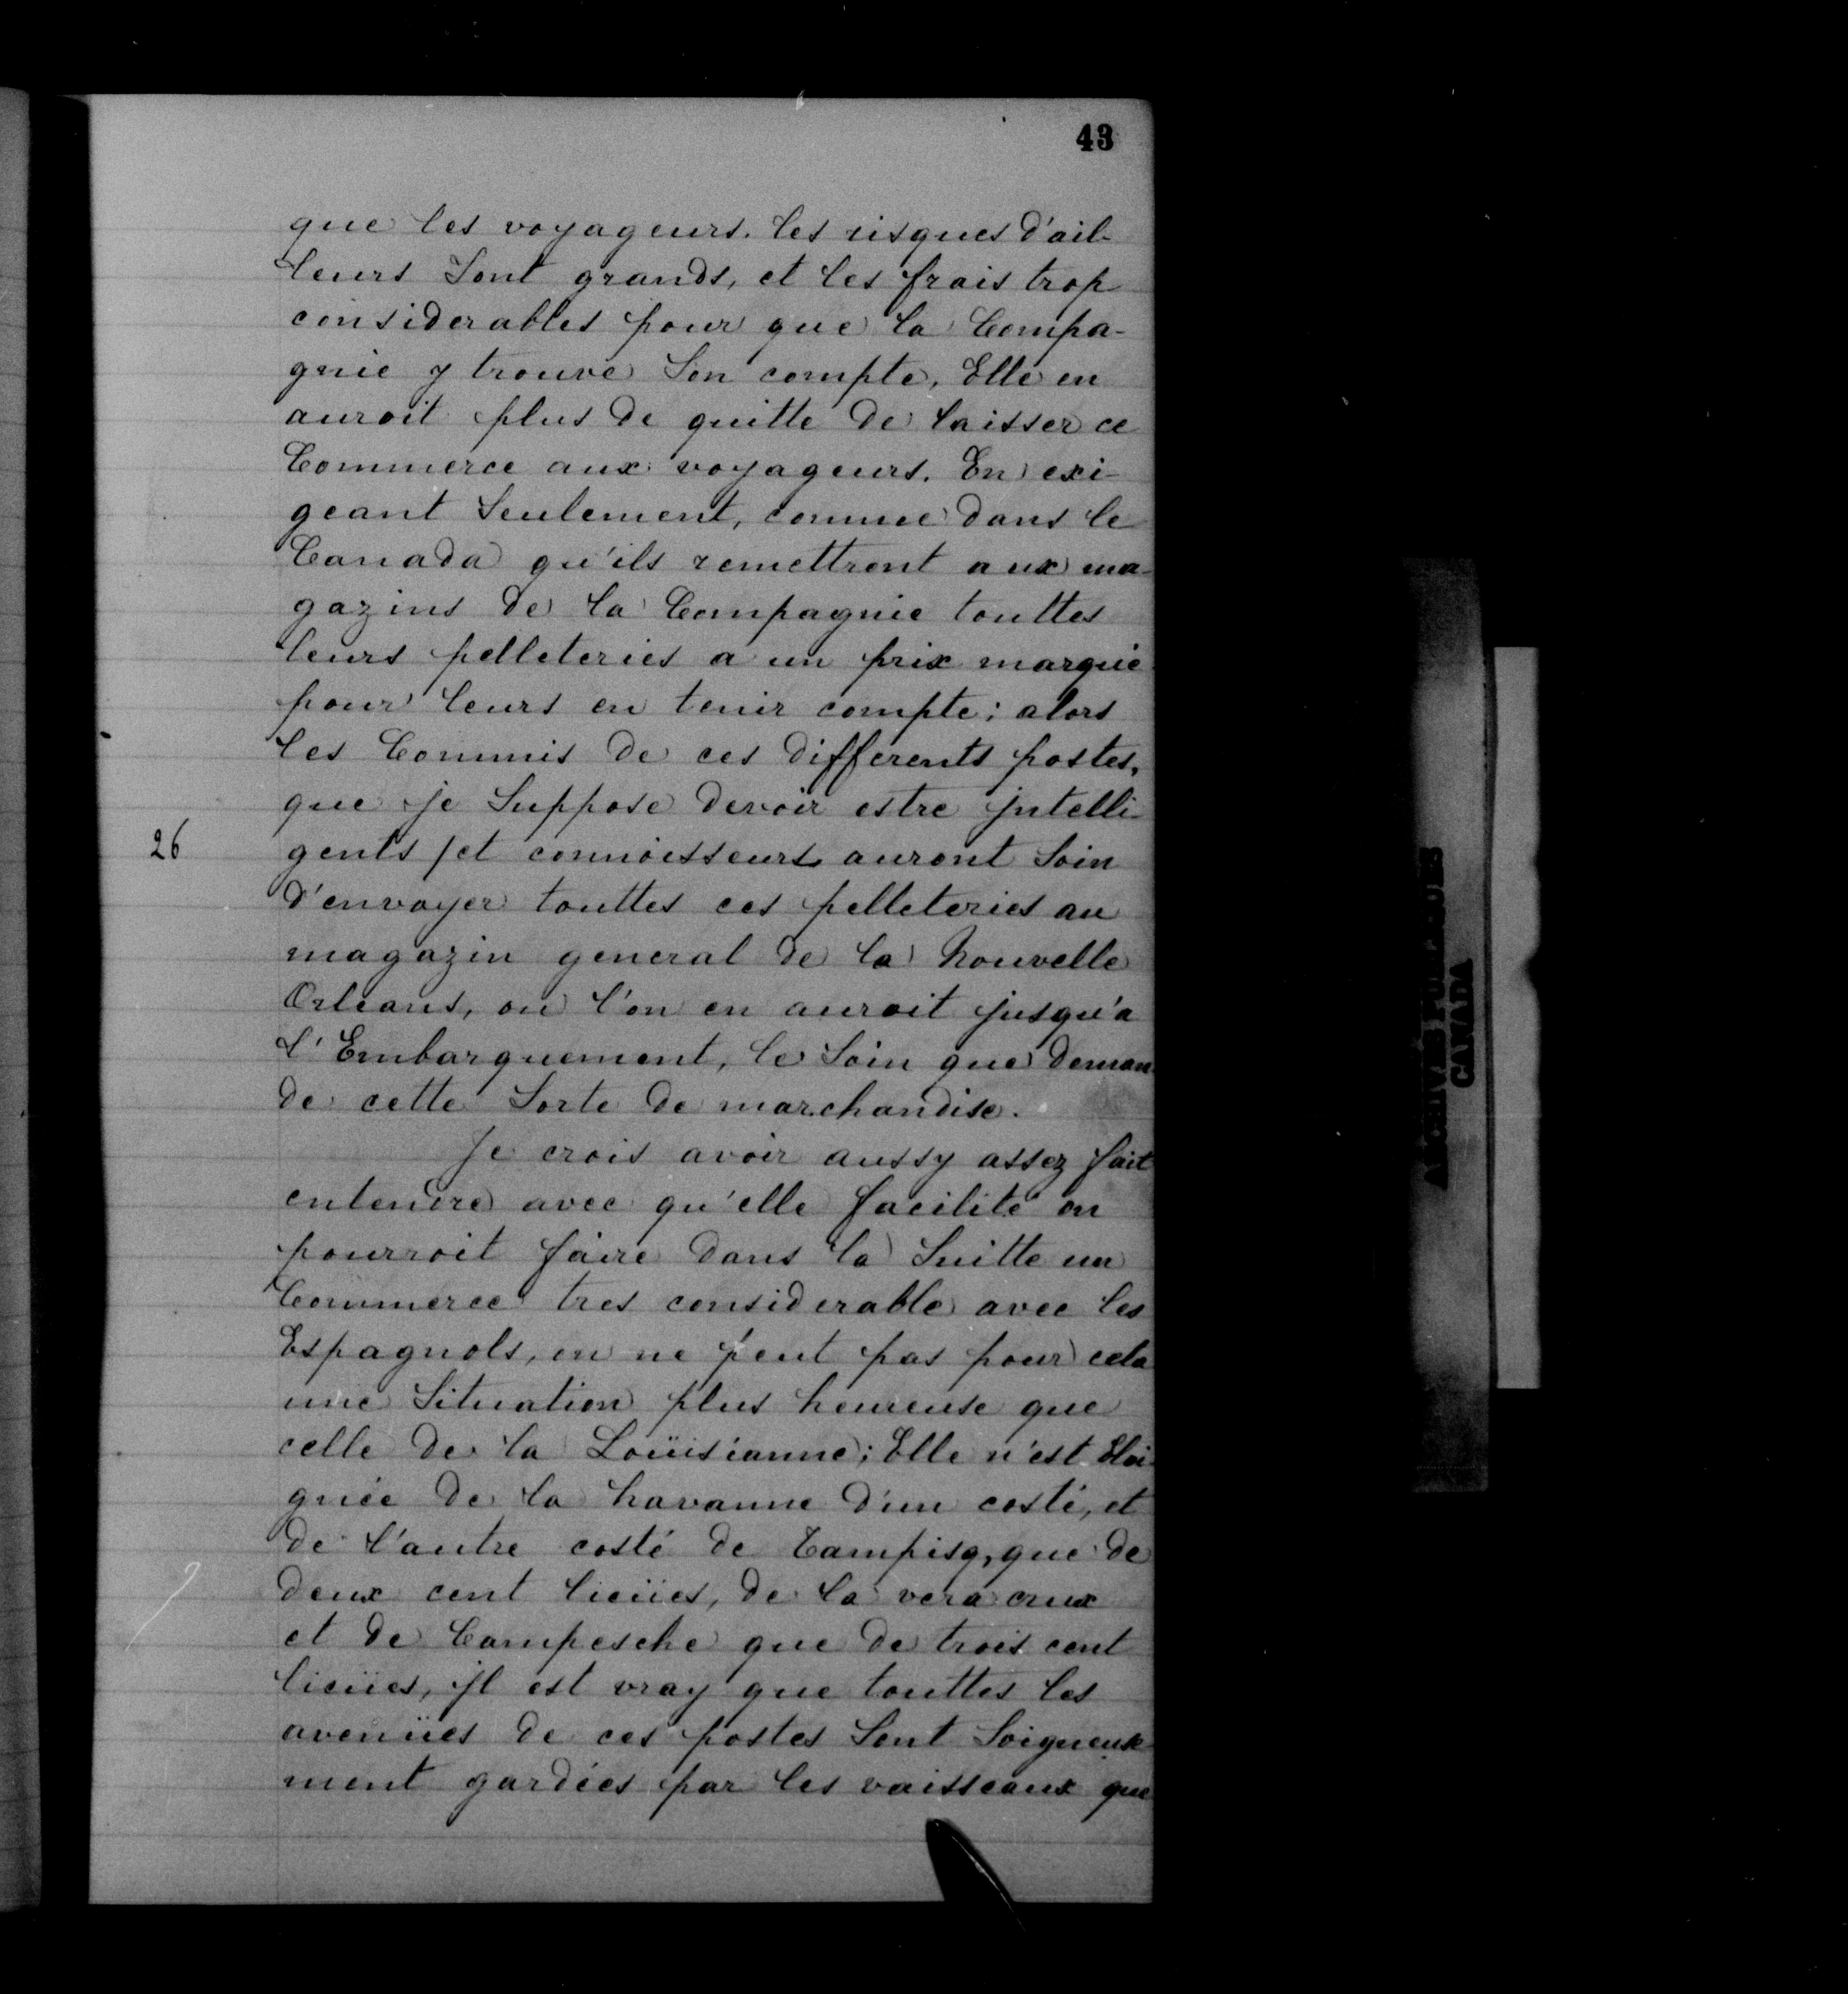 43
que les voyageurs. les risques d'ail-
leurs Sont grands, et les frais trop
considerables pour que la Compa-
gnie y trouve Son compte, Elle en
auroit plus de quitte de laisser ce
Commerce aux voyageurs. En exi-
geant Seulement, comme dans le
Canada qu'ils remettront aux ma-
gazins de la Compagnie touttes
leurs pelleteries a un prix marqué
pour leurs en tenir compte; alors
les Commis de ces differents postes,
que je Suppose devoir estre jntelli-
26 gents /et connoisseurs auront Soin
d'envoyer touttes ces pelleteries au
magazin general de la Nouvelle
Orleans, ou l'on en auroit jusqu'a
l'Embarquement, le Soin que deman-
de cette Sorte de marchandise.
Je crois avoir aussy assez fait
entendre avec qu'elle facilité on
pourroit faire dans la Suitte un
Commerce tres considerable avec les
Espagnols, on ne peut pas pour cela
une Situation plus heureuse que
celle de la Loüisianne; Elle n'est Eloi-
gnée de la havanne d'un costé, et
de l'autre costé de Tampisq, que de
deux cent lieües, de la vera crux
et de Campesche que de trois cent
lieües, jl est vray que touttes les
avenües de ces postes Sont Soigneuse-
ment gardées par les vaisseaux que
ARCHIVES PUBLIQUES
CANADA